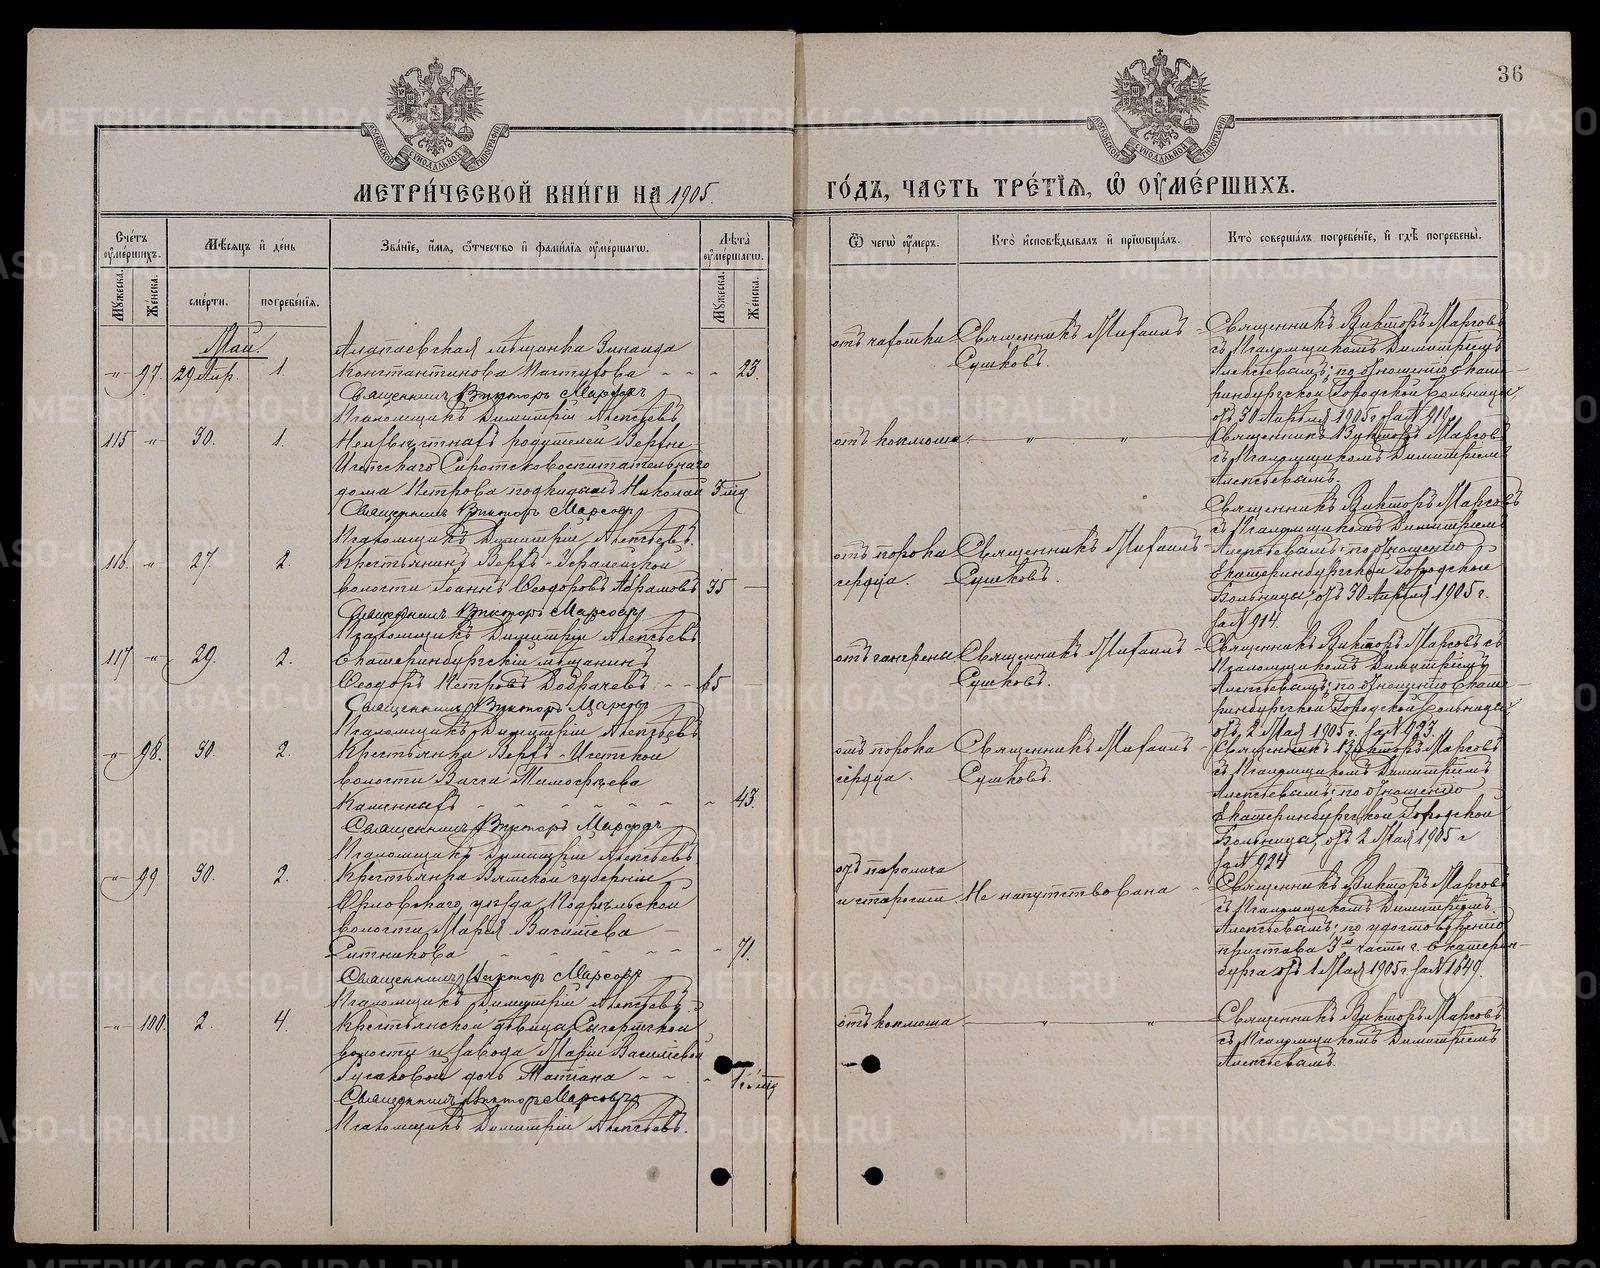 36
МОСКОВСКОЙ СѴНОДАЛЬНОЙ ТИПОГРАФІИ
МОСКОВСКОЙ СѴНОДАЛЬНОЙ ТИПОГРАФІИ
МЕТРИ́ЧЕСКОЙ КНИ́ГИ НА 1905.
ГО́ДЪ, ЧАСТЬ ТРЕ́ТІѦ, Ѡ҆ ОУ҆МЕ́РШИХЪ.
Счетъ оумершихъ.
Мѣсяцъ и день
Званіе, имя, отчество и фамилія оумершагѡ.
Лѣта оумершагѡ.
Ѿ чегѡ оумеръ.
Кто исповѣдывалъ и пріобщалъ.
Кто совершалъ погребеніе, и гдѣ погребены.
Мужеска.
Женска.
смерти.
погребенія.
Мужеска.
Женска.
Май.
-"- 97. 29 Апр. 1.
Алапаевская мѣщанка Зинаида
Константинова - - - 23.
Священникъ Викторъ Марсовъ
Псаломщикъ Димитрій Алексѣевъ
отъ чахотки
Священникъ Михаилъ
Сушковъ.
Священникъ Викторъ Марсовъ
съ Псаломщикомъ Димитріемъ
Алексѣевымъ; по отношенію Екате-
ринбургской Городской больницы
отъ 30 Апрѣля 1905 г. за №
115 -"- 30. 1.
Неизвѣстныхъ родителей Верхне-
Исетскаго Сиротсковоспитательнаго
дома Петрова подкидышъ Николай 3 мѣс
Священникъ Викторъ Марсовъ
Псаломщикъ Димитрій Алексѣевъ.
отъ коклюша. " "
Священникъ Викторъ Марсовъ
съ Псаломщикомъ Димитріемъ
Алексѣевымъ.
116. " 27. 2.
Крестьянинъ Верхъ-
волости Іоаннъ Ѳеодоровъ Абрамовъ 35 —
Священникъ Викторъ Марсовъ
Псаломщикъ Димитрій Алексѣевъ
отъ порока
сердца.
Священникъ Михаилъ
Сушковъ.
Священникъ Викторъ Марсовъ
съ Псаломщикомъ Димитріемъ
Алексѣевымъ; по отношенію
Екатеринбургской Городской
Больницы, отъ 30 Апрѣля 1905 г.
за № 914.
117 -"- 29. 2.
Екатеринбургскій мѣщанинъ
Ѳеодоръ Петровъ - - 65 —
Священникъ Викторъ Марсовъ
Псаломщикъ Димитрій Алексѣевъ
отъ гангрены
Священникъ Михаилъ
Сушковъ.
Священникъ Викторъ Марсовъ съ
Псаломщикомъ Димитріемъ
Алексѣевымъ; по отношенію Екате-
ринбургской Городской больницы
отъ 2 Мая 1905 г. за № 923.
-"- 98. 30 2.
Крестьянка Верхъ-Исетской
волости Васса Тимоѳеева
Каменныхъ - - - - - - 43.
Священникъ Викторъ Марсовъ
Псаломщикъ Димитрій Алексѣевъ
отъ порока
сердца.
Священникъ Михаилъ
Сушковъ.
Священникъ Викторъ Марсовъ
съ Псаломщикомъ Димитріемъ
Алексѣевымъ; по отношенію
Екатеринбургской Городской
Больницы, отъ 2 Мая 1905 г
за № 924
-"- 99. 30. 2.
Крестьянка Вятской губерніи
Орловскаго уѣзда,
волости Марія Васильева —
Ситникова - - - - - - 71.
Священникъ Викторъ Марсовъ
Псаломщикъ Димитрій Алексѣевъ
отъ паралича
и старости
Не напутствована -
Священникъ Викторъ Марсовъ
съ Псаломщикомъ Димитріемъ
Алексѣевымъ; по удостовѣренію
пристава 3й части г. Екатерин-
бурга отъ 1 Мая 1905 г за № 1649.
-"- 100. 2. 4.
Крестьянской дѣвицы Сысертской
волости и завода Маріи Васильевой
Русаковой дочь Татіана - - -
Священникъ Викторъ Марсовъ
Псаломщикъ Димитрій Алексѣевъ.
отъ коклюша — " "
Священникъ Викторъ Марсовъ
съ Псаломщикомъ Димитріемъ
Алексѣевымъ.
METRIKI.GASO-URAL.RU